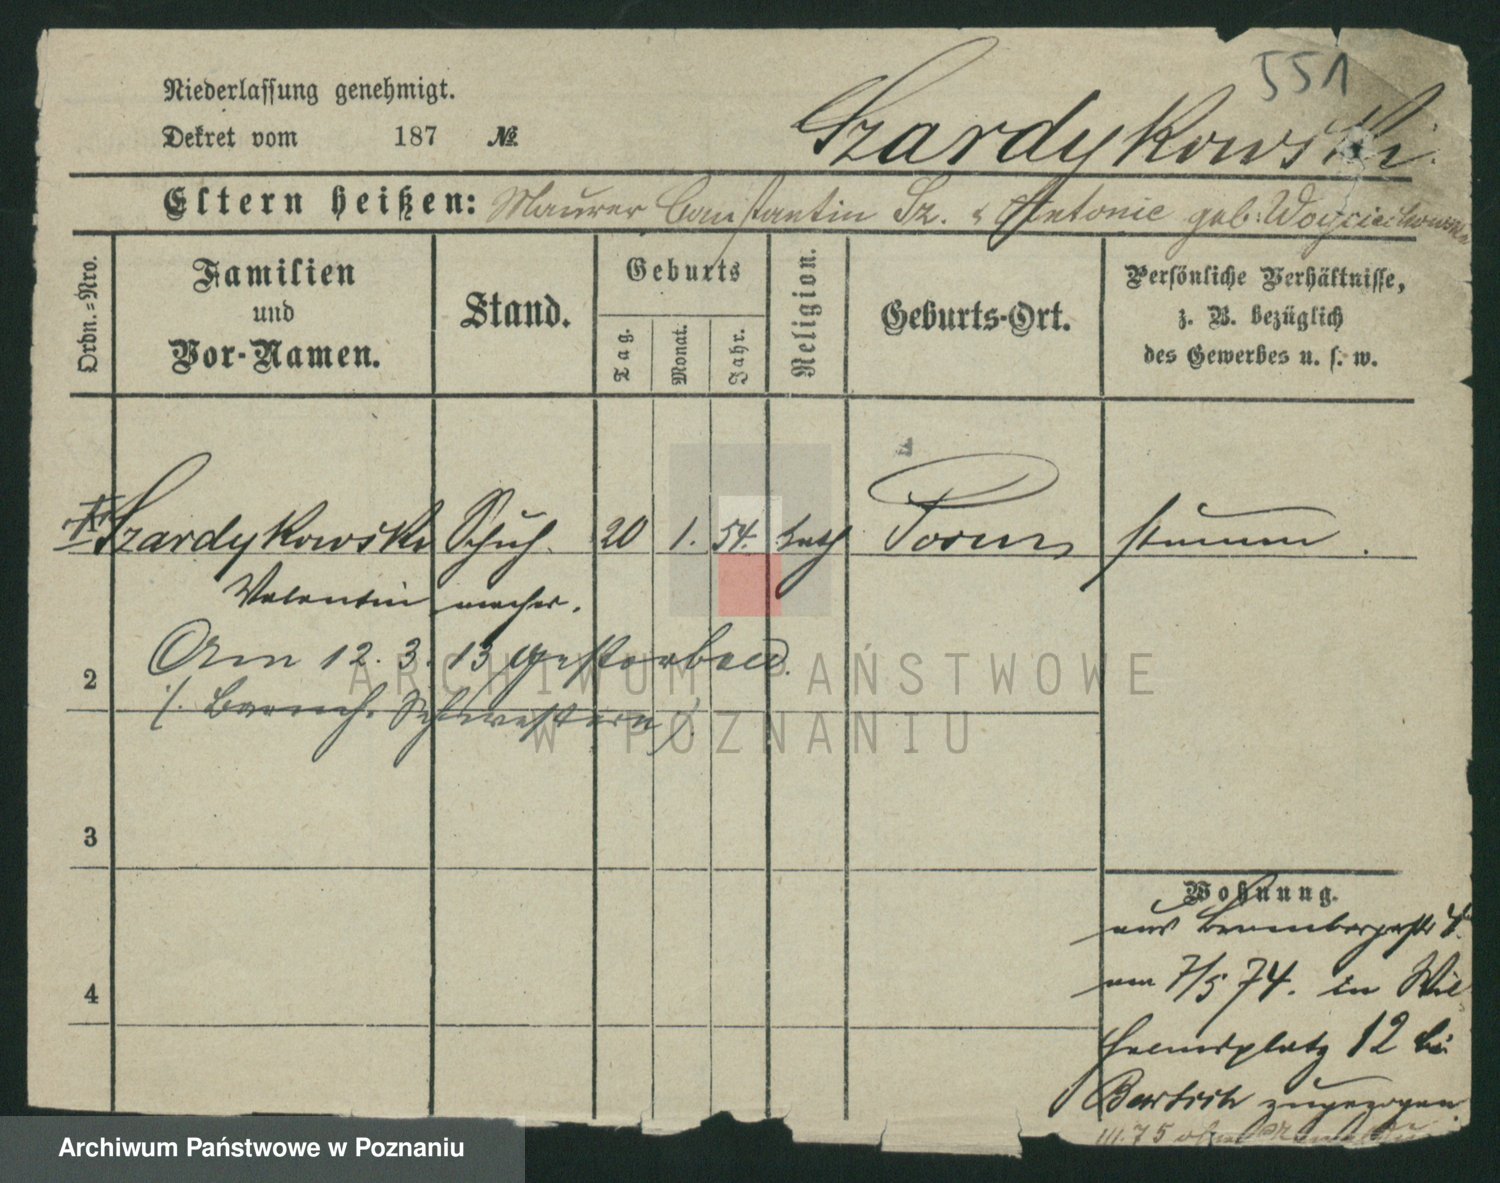 551
Niederlassung genehmigt.
Dekret vom 187 №
Szardykowski.
Eltern heißen: Maurer Constantin Sz. & Antonie geb. Woyciechowska
Ordn.=Nro.
Familien
und
Vor-Namen.
Stand.
Geburts
Tag.
Monat.
Jahr.
Religion.
Geburts-Ort.
Persönliche Verhältnisse,
z. B. bezüglich
des Gewerbes u. s. w.
Szardykowski Schuh- 20 1. 54. kath Posen stumm.
Valentin macher.
Am 12. 3. 13 gestorben.
2
/. Barmh. Schwestern /.
3
Wohnung.
aus Brombergerstr
am 7/5 74. in Wil
4
helmsplatz 12 bei
Bartsch zugezogen.
III. 75
ARCHIWUM PAŃSTWOWE
W POZNANIU
Archiwum Państwowe w Poznaniu